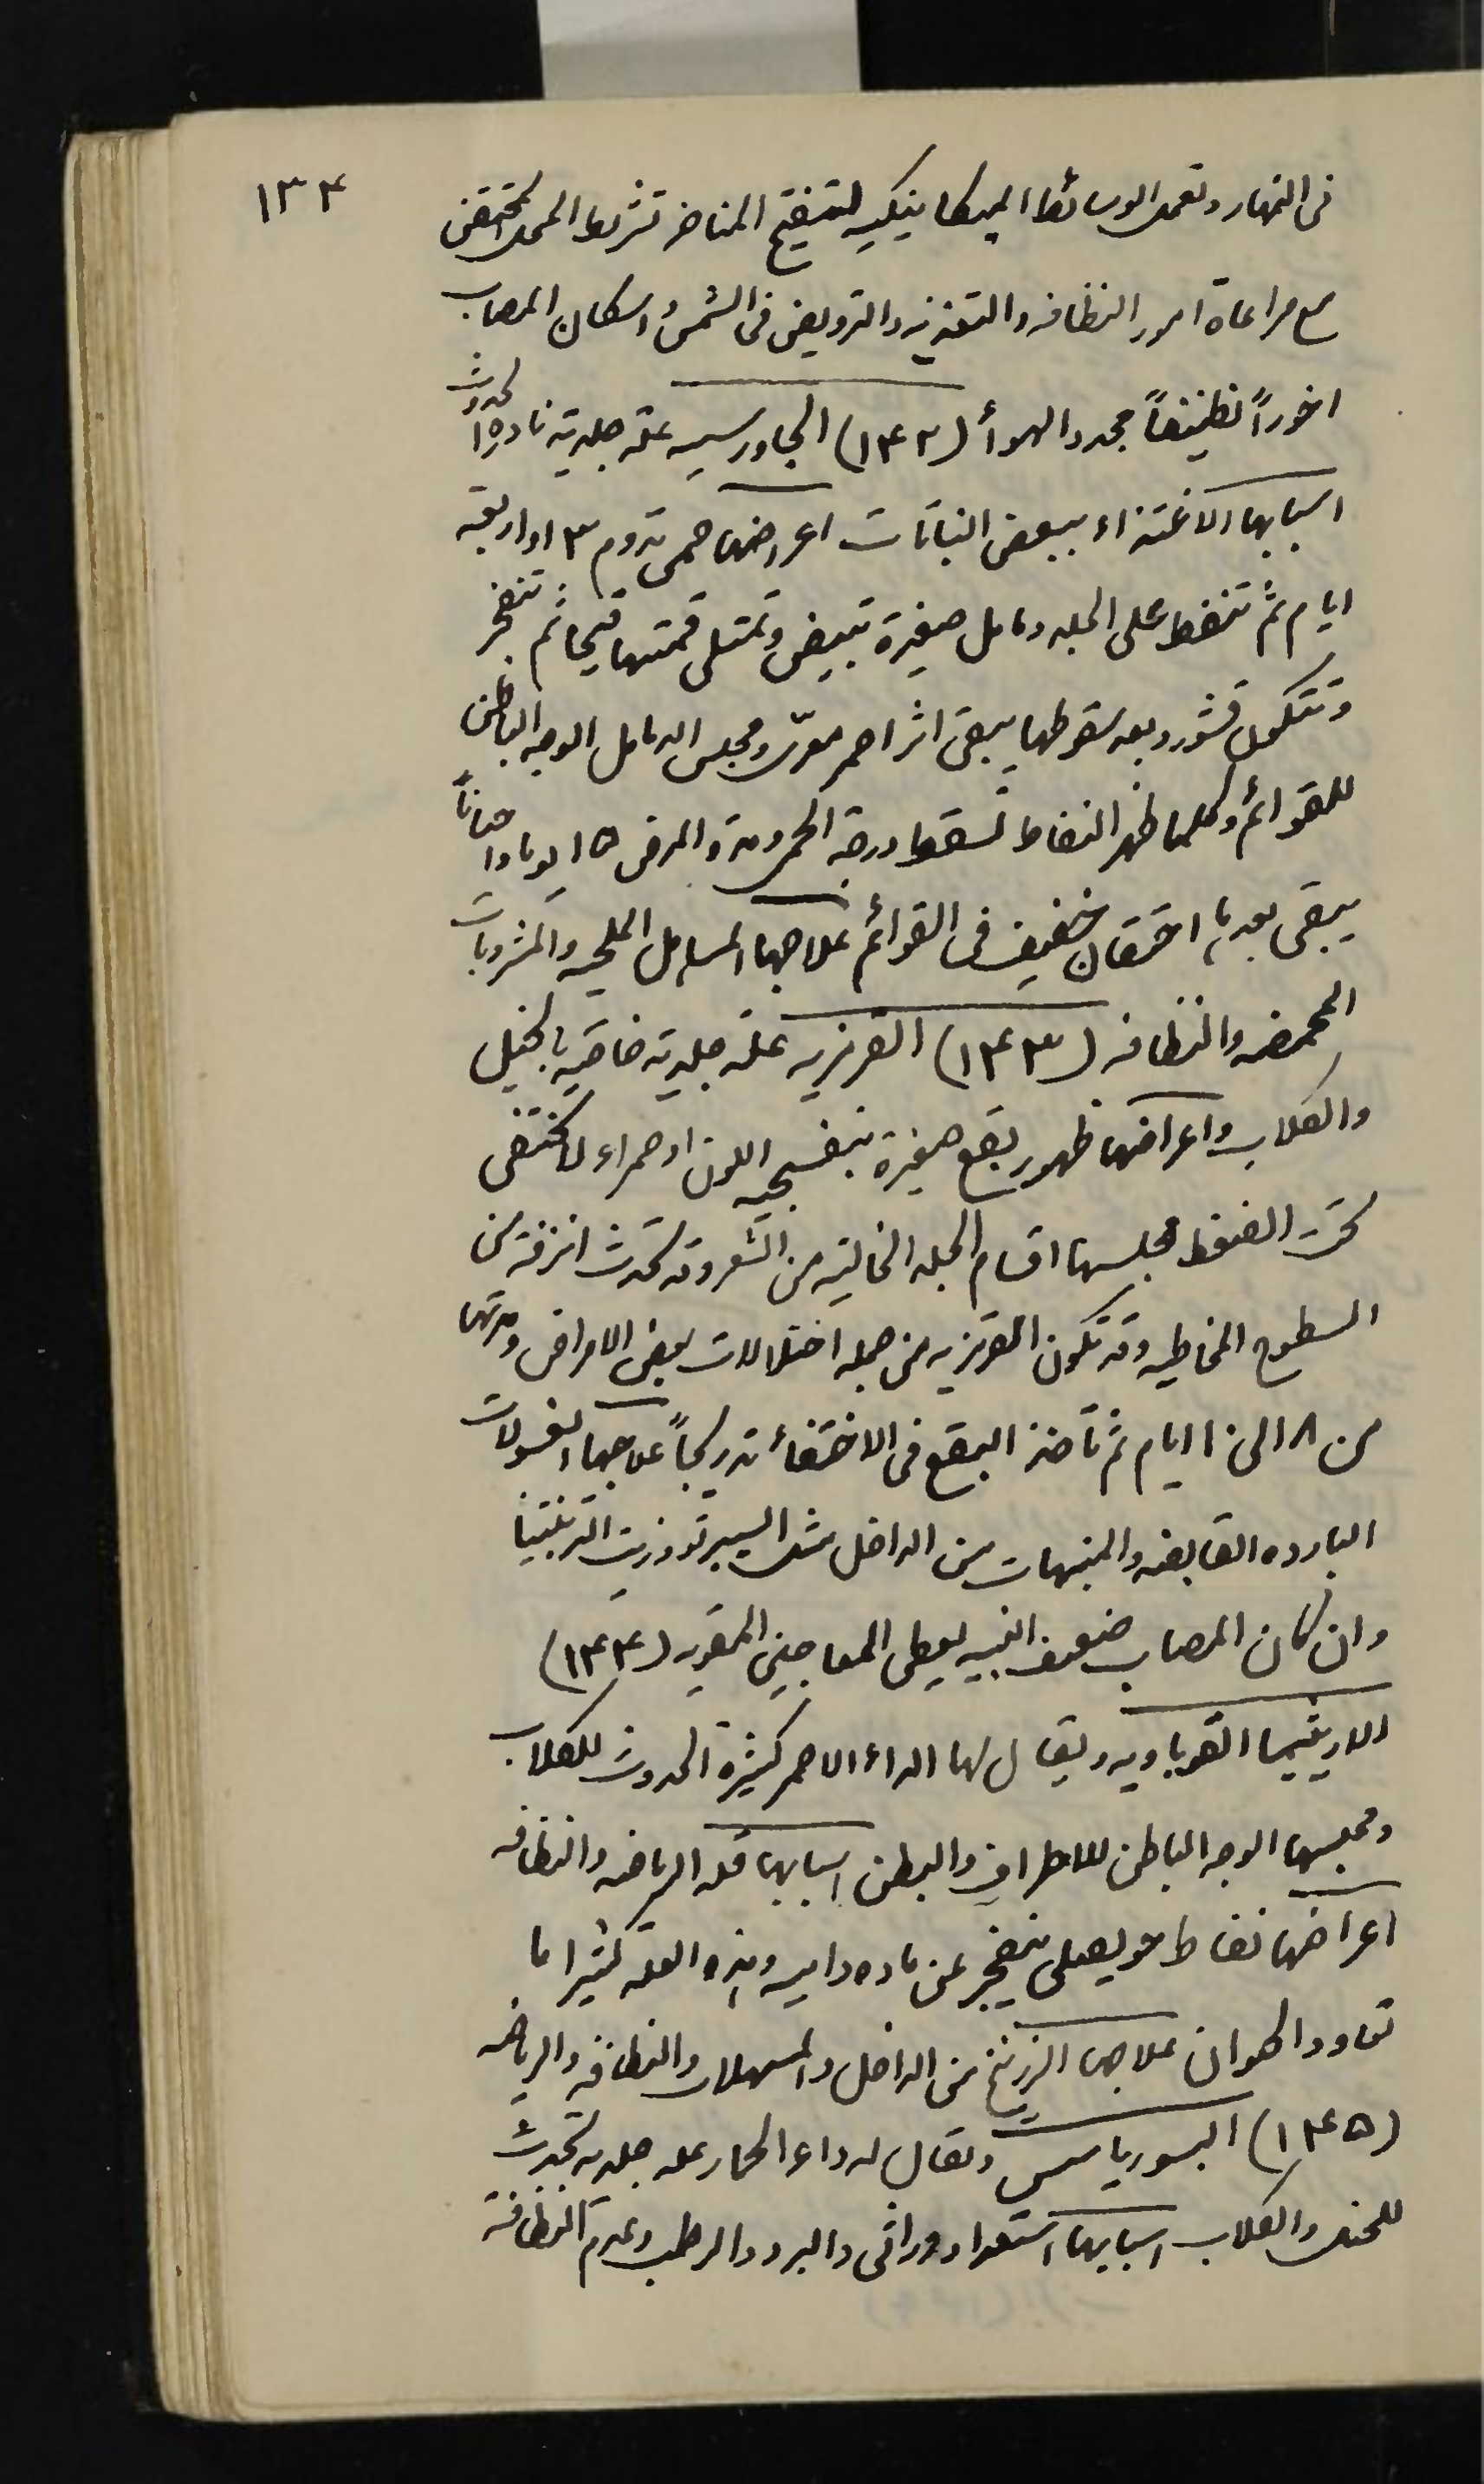 ١٣٤
فى النهار وتعمل الوسائط الميكانيكيه لتفتيح المناخر تشريط المحل المحتقن
مع مراعاة امور النظافه والتغذيه والترويض فى الشمس واسكان المصاب
اخوراً نظيفاً مجدد الهوأ (١٤٢) الجاورسيه علة جلدية نادرة الحدوث
اسبابها الاغتذاء ببعض النباتات اعراضها حمى تدوم ٣ او اربعة
ايام ثم تنفط على الجلد دمامل صغيرة تبيض وتمتلى قمتها قيحا ثم تنفجر
وتتكون قشور وبعد سقوطها يبقى اثر احمر معرّى ومجلس الدمامل الوجه الباطن
للقوائم وكلما ظهر النفاط تسقط درجة الحمى ومدة المرض ١٥ يوما واحياناً
يبقى بعدها احتقان خفيف فى القوائم علاجها المساهل الملحيه والمشروبات
المحمضه والنظافه (١٤٣) الفرفريه علة جلدية خاصة بالخيل
والكلاب واعراضها ظهور بقع صغيرة بنفسجيه اللون او حمراء لا تختفى
تحت الضغط مجلسها اقسام الجلد الخالية من الشعر وقد تحدث انزفة من
السطوح المخاطيه وقد تكون الفرفريه من جمله اختلالات بعض الامراض ومدتها
من ٨ الى ١٠ ايام ثم تأخذ البقع فى الاختفأ تدريجاً علاجها الغسولات
البارده القابضه والمنبهات من الداخل مثل السبيرتو وزيت التربنتينا
وان كان المصاب ضعيف البنيه يعطى المعاجين المقويه (١٤٤)
الاريثيما القوباويه ويقال لها الداء الاحمر كثيرة الحدوث للكلاب
ومجلسها الوجه الباطن للاطراف والبطن اسبابها قلة الرياضه والنظافه
اعراضها نفاط حويصلى ينفجر عن ماده داميه وهذه العلة كثيرا ما
تعاود الحيوان علاجها الزرنيخ من الداخل والمسهلات والنظافه والرياضه
(١٤٥) البسورياسس ويقال له داء الحمار علة جلديه تحدث
للخيل والكلاب اسبابها استعداد وراثى والبرد والرطب وعدم النظافة